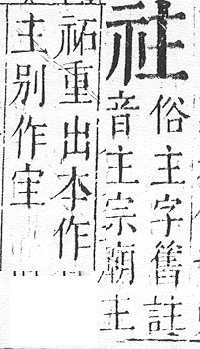 俗主字舊註
音主宗廟主
祏重出本作
主別作宔